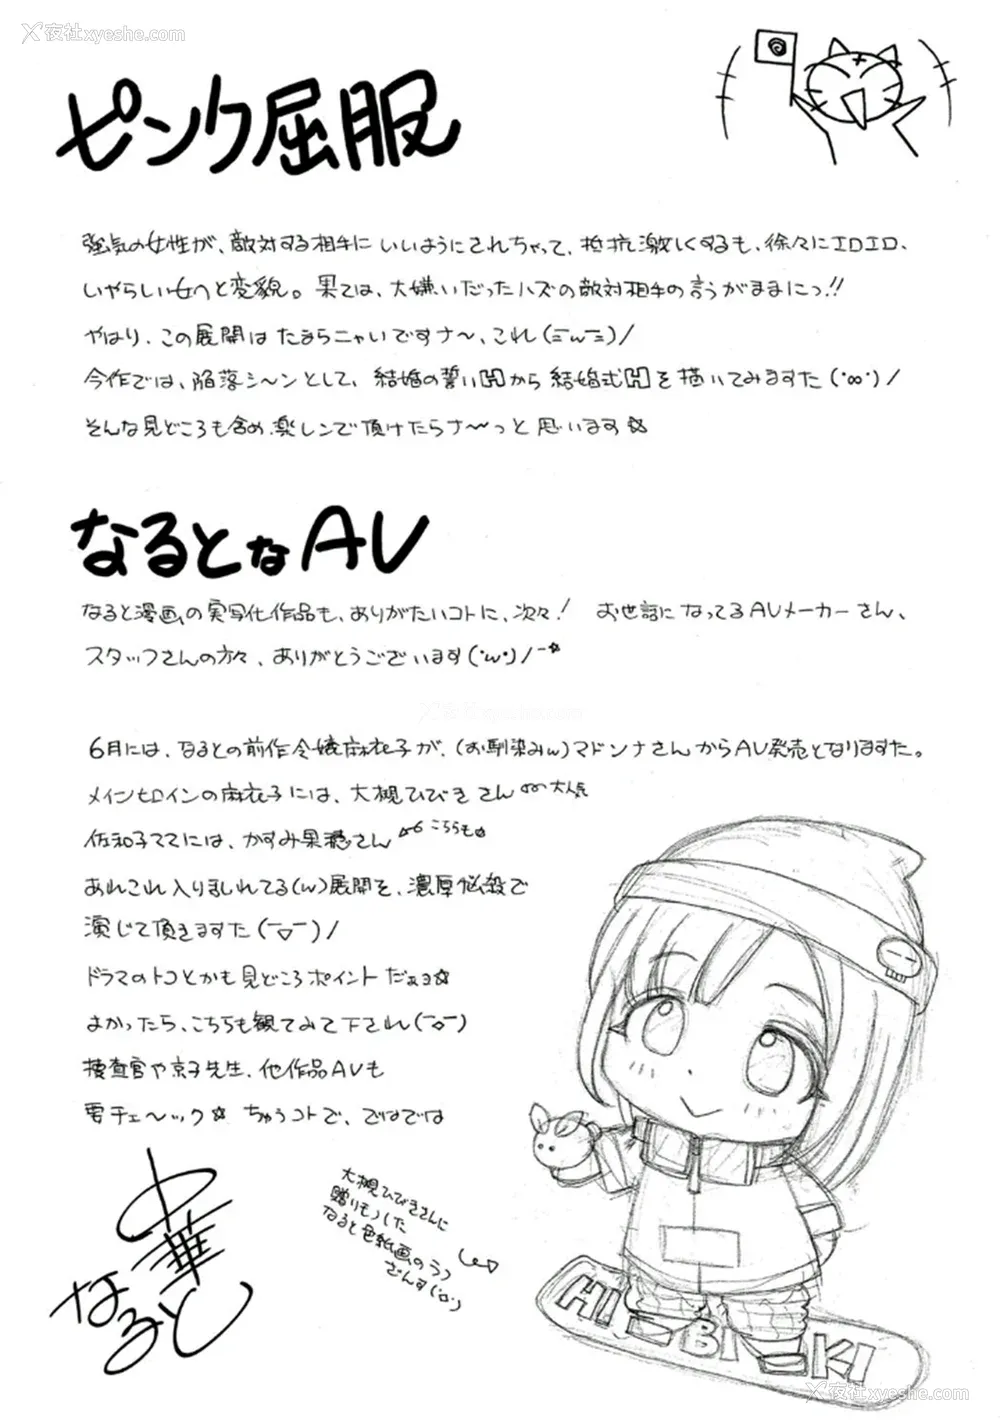 夜社xyeshe.com
ピンク屈服
強気の女性が、敵対する相手にいいようにされちゃって、抵抗激しくするも、徐々にエロエロ、
いやらしい女へと変貌。果ては、大嫌いだったハズの敵対相手の言うがままにっ!!
やはり、この展開はたまらニャいですナ〜、これ(ミwミ)/
今作では、陥落シ〜ンとして、結婚の誓いHから結婚式Hを描いてみますた(・∞・)/
そんな見どころも含め、楽しンで頂けたらナ〜っと思います☆
なるとなAV
なると漫画の実写化作品も、ありがたいコトに、次々! お世話になってるAVメーカーさん、
スタッフさんの方々、ありがとうございます(・w・)/-☆
6月には、なるとの前作令嬢麻衣子が、(お馴染みw)マドンナさんからAV発売となりますた。
メインヒロインの麻衣子には、大槻ひびきさん 大人気
佐和子ママには、かすみ果穂さん こちらも☆
あれこれ入りまじれてる(w)展開を、濃厚悩殺で
演じて頂きますた(￣▽￣)/
ドラマのトコとかも見どころポイントだぁョ☆
よかったら、こちらも観てみて下され(￣o￣)
捜査官や京子先生、他作品AVも
要チェ〜ック☆ ちゅうコトで、ではでは
中華なると
大槻ひびきさんに
贈りもノした
なると色紙画のラフ
ざんす(・o・)
HIBIKI
夜社xyeshe.com